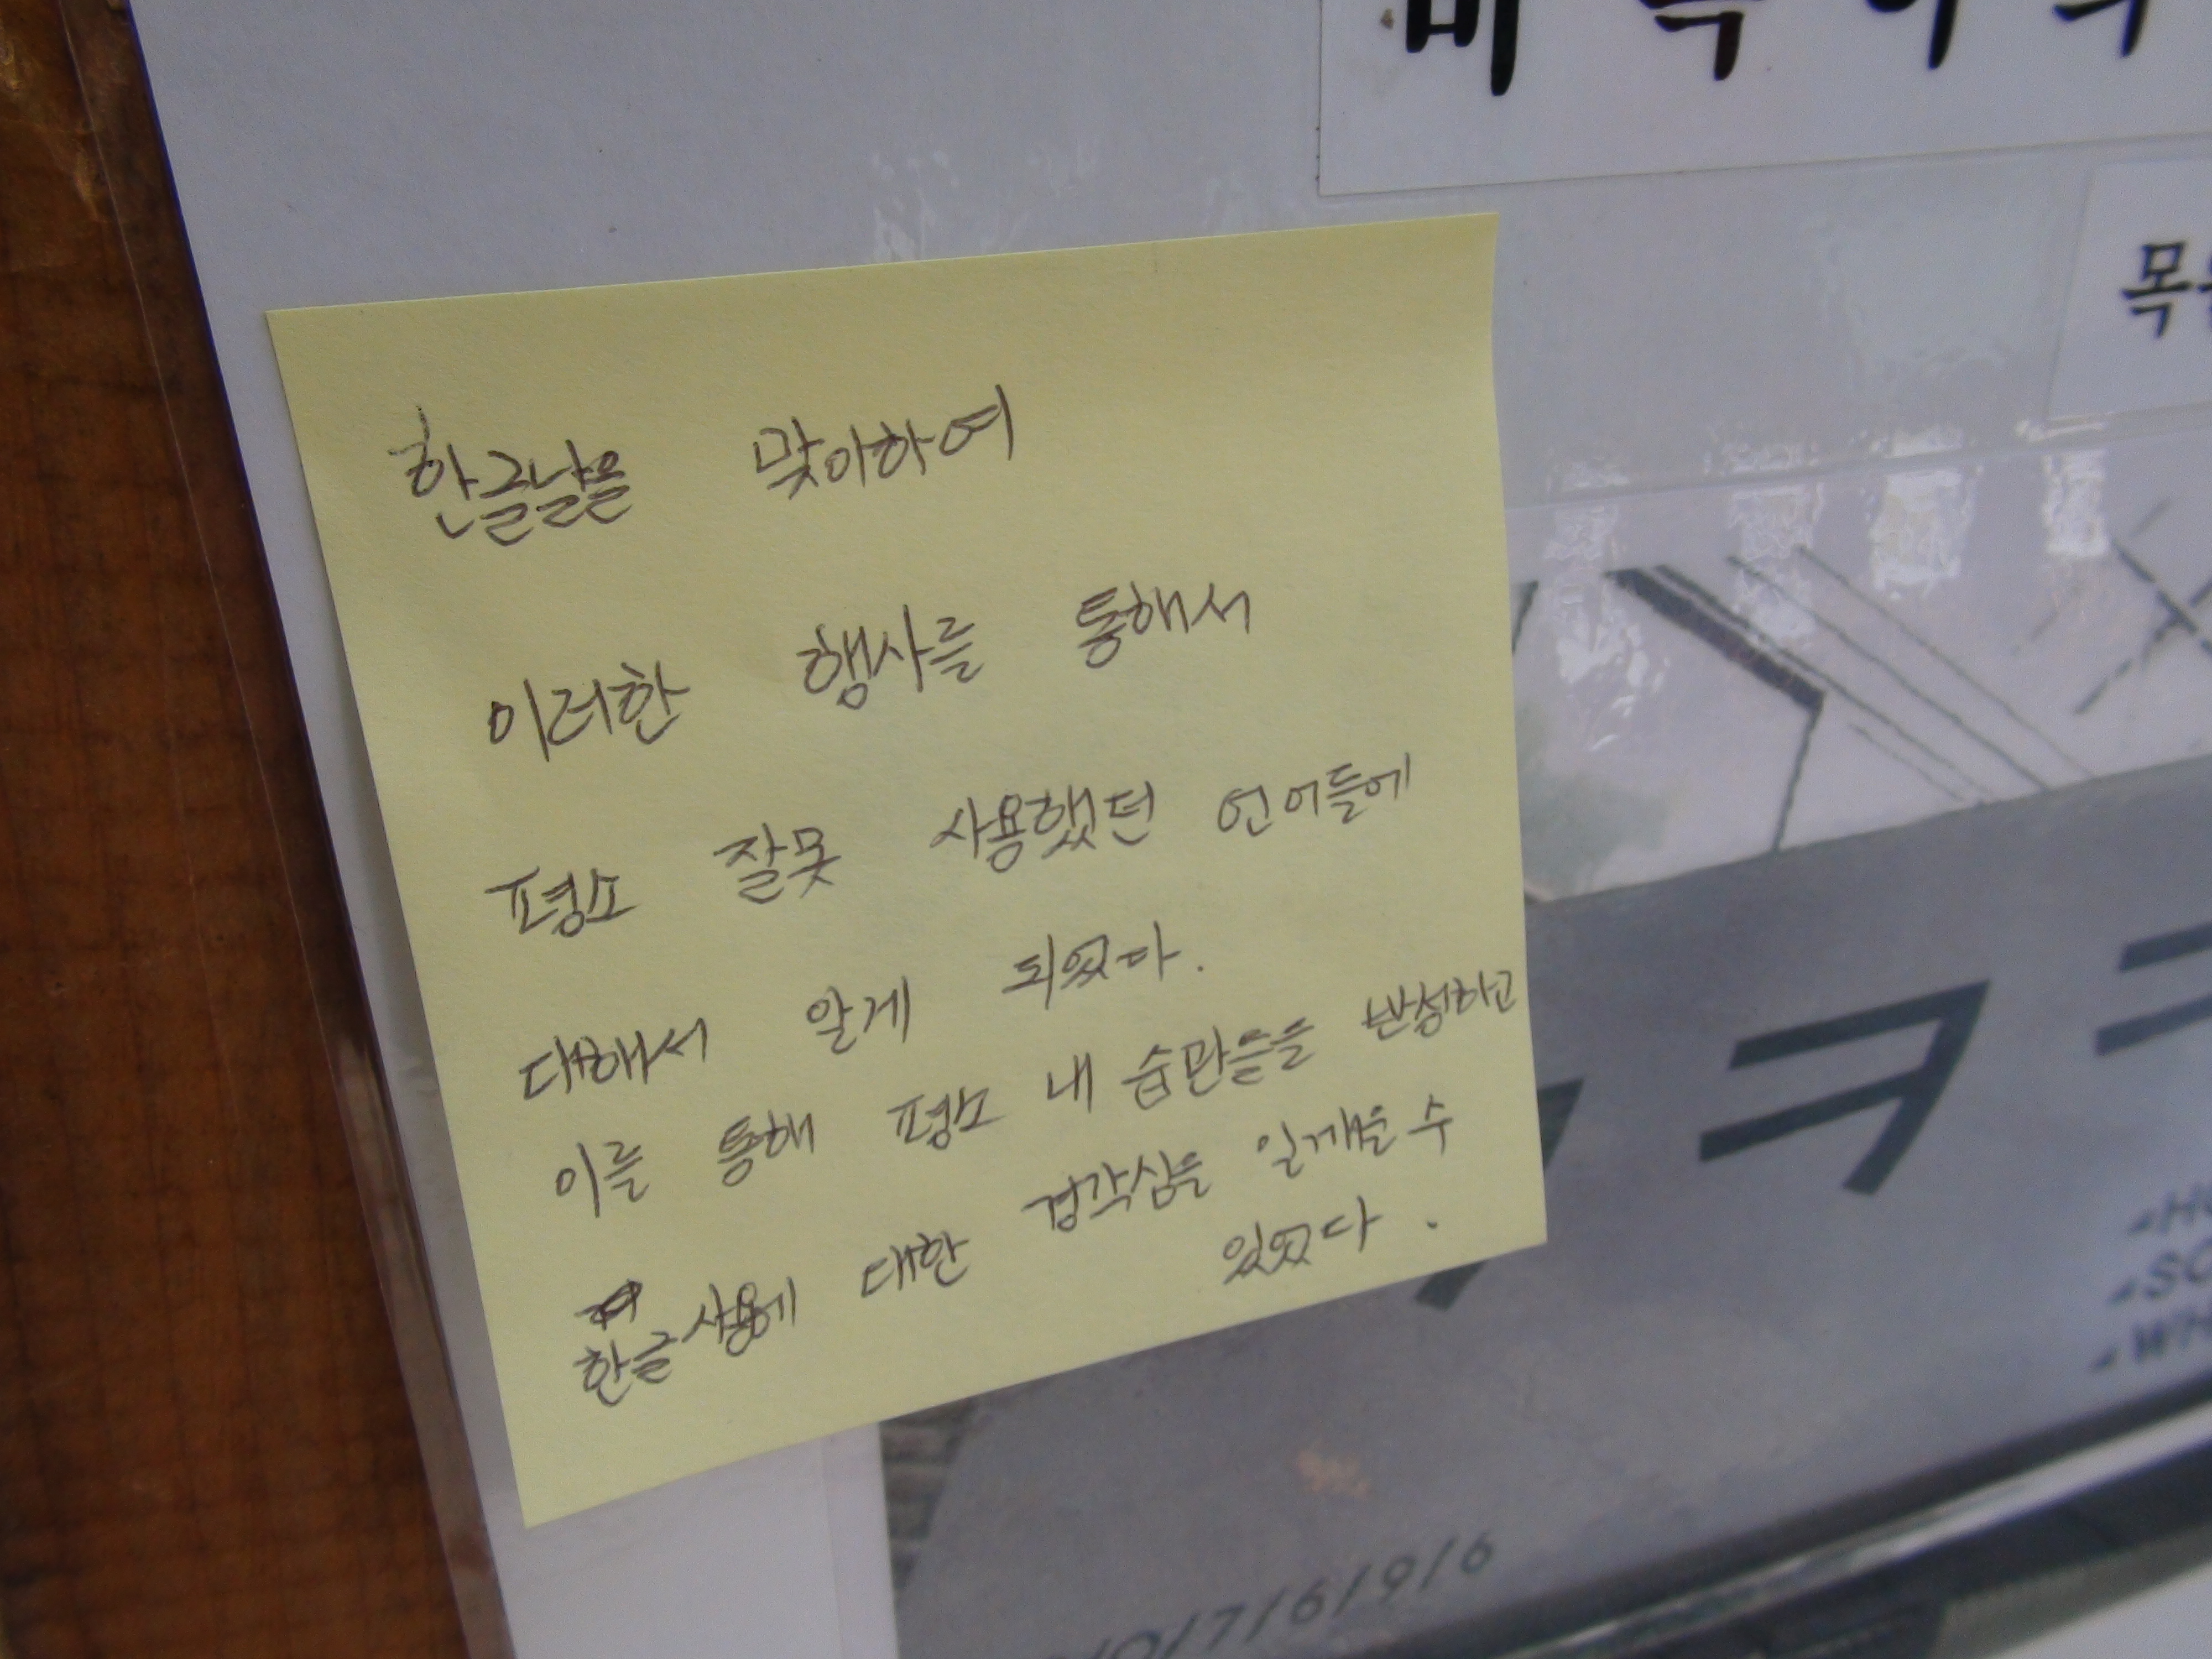 한글날을 맞아하여
이러한 행사를 통해서
평소 잘못 사용했던 언어들에
대해서 알게 되었다.
이를 통해 평소 내 습관들을 반성하고
한글사용에 대한 경각심을 일깨울 수
있었다.
ㅋ
10/7/6/9/6